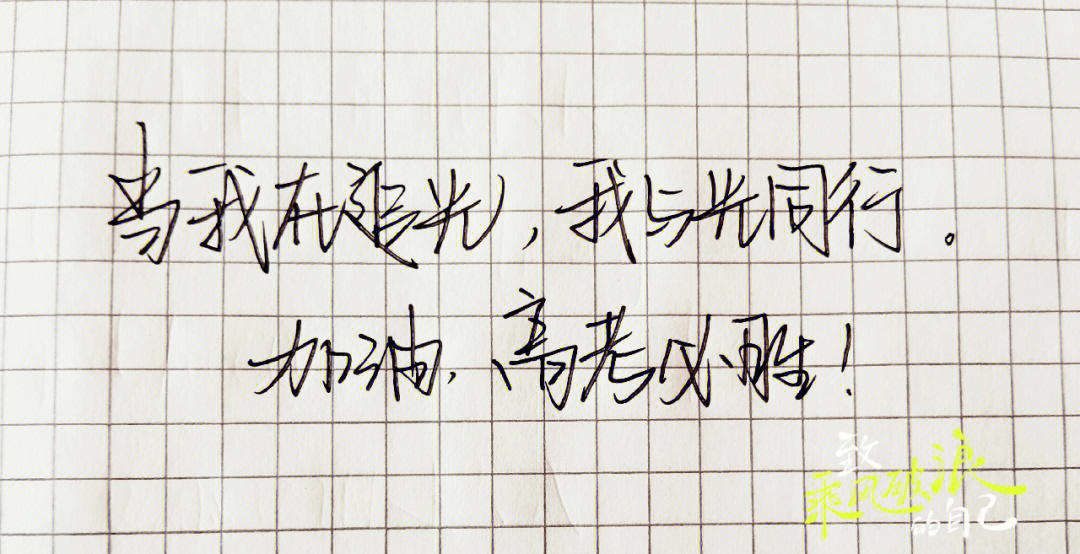 当我在追光，我与光同行。
加油，高考必胜！
致
乘风破浪
的自己